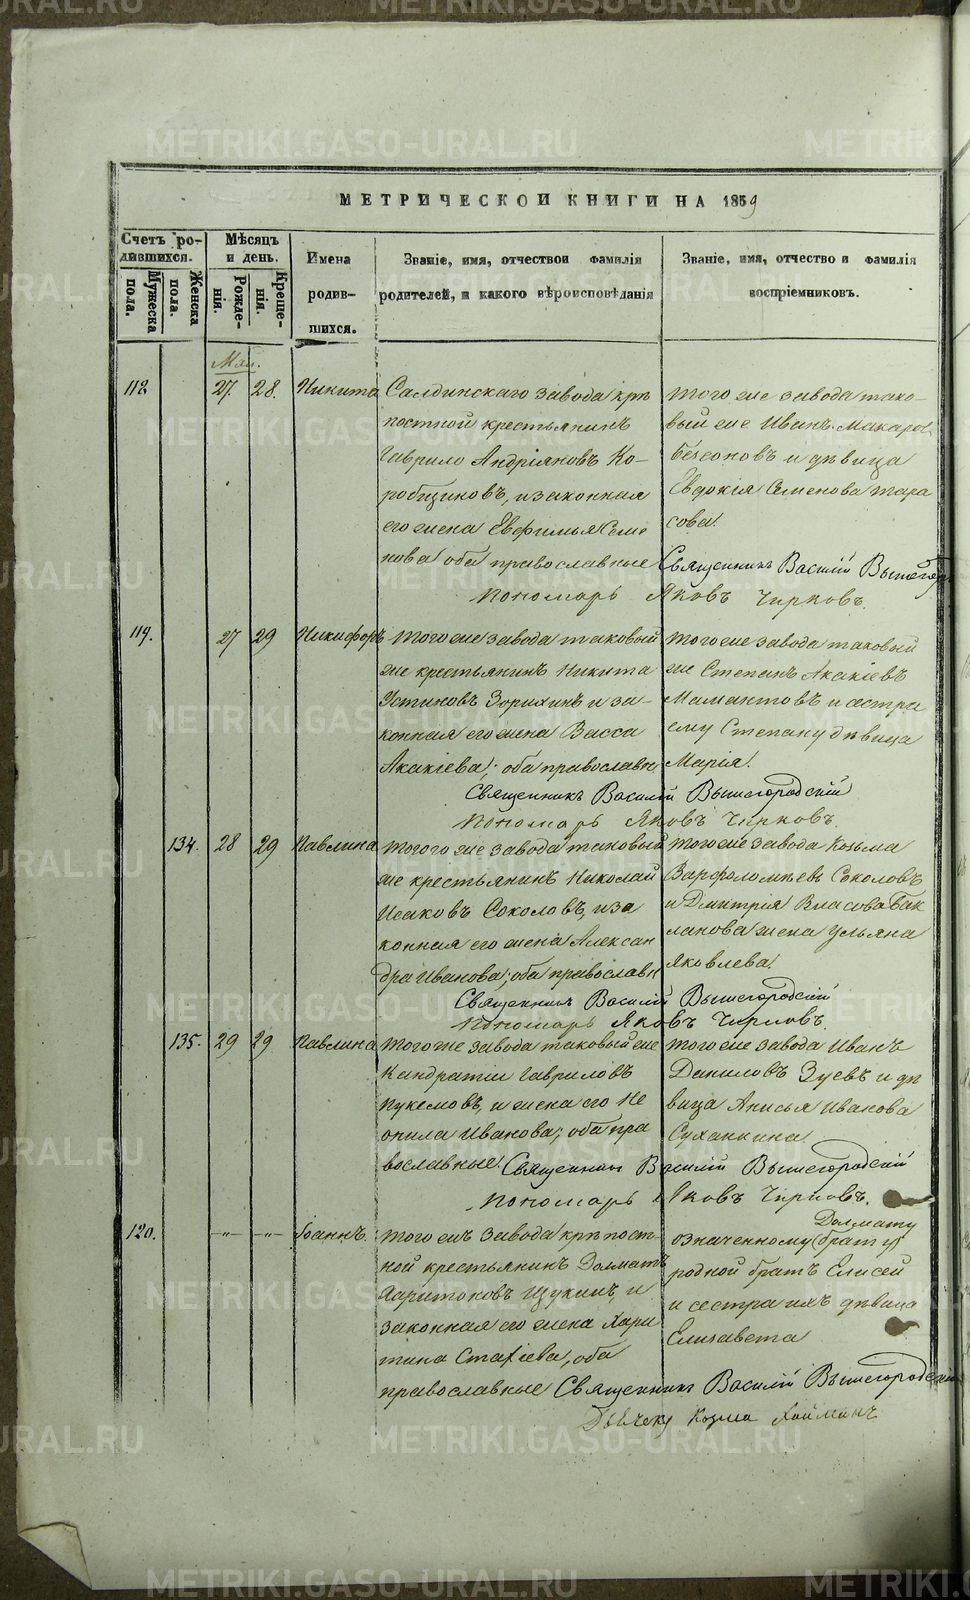 МЕТРИЧЕСКОЙ КНИГИ НА 1859
Счетъ ро-
дившихся.
Мужеска
пола.
Женска
пола.
Мѣсяцъ
и день.
Рожде-
нія.
Креще-
нія.
Имена
родив-
шихся.
Званіе, имя, отчествои фамилія
родителей, и какого вѣроисповѣданія
Званіе, имя, отчество и фамилія
воспріемниковъ.
Май.
112 27. 28. Никита
Салдинскаго завода крѣ
постной крестьянинъ
Гаврило Андріяновъ Ко-
робщиковъ, и законная
его жена Евфимья Семе
нова оба православные
того же завода тако-
вый же Иванъ Макаров
безсоновъ и дѣвица
Евдокія Семенова тара
сова.
Священникъ Василій
Пономарь Яковъ Чирковъ.
119. 27 29 Никифоръ
того же завода таковый
же крестьянинъ Никита
Устиновъ Зорихинъ и за-
конная его жена Васса
Акакіева; оба православн
того же завода таковый
же Степанъ Акакіевъ
Мамантовъ и сестра
ему Степану дѣвица
Марія.
Священникъ Василій Вышегородскій
Пономарь Яковъ Чирковъ.
134. 28 29 Павлина
тогого же завода таковый
же крестьянинъ Николай
Исаковъ Соколовъ, и за
конная его жена Алексан
дра Иванова; оба православн
того же завода Козьма
Варфоломѣевъ Соколовъ
и Дмитрія Власова Бак
ланова жена Ульяна
Яковлева.
Священникъ Василій Вышегородскій
Пономарь Яковъ Чирковъ.
135. 29 29 Павлина
того же завода таковый же
Кандратіи Гавриловъ
Пукемовъ, и жена его Не
онила Иванова; оба пра
вославные.
того же завода Иванъ
Даниловъ Зуевъ и дѣ
вица Анисья Иванова
Суханкина
Священникъ Василій Вышегородскій
Пономарь Яковъ Чирковъ.
120. -"- -"- Іоаннъ.
того жъ завода крѣпост
ной крестьянинъ Долматъ
Харитоновъ Щукинъ, и
законная его жена Хари
тина Стахіева, оба
православные
Долмату
означенному (брату)
родной братъ Елисей
и сестра ихъ дѣвица
Елизавета
Священникъ Василій Вышегородскій
Козма
METRIKI.GASO-URAL.RU